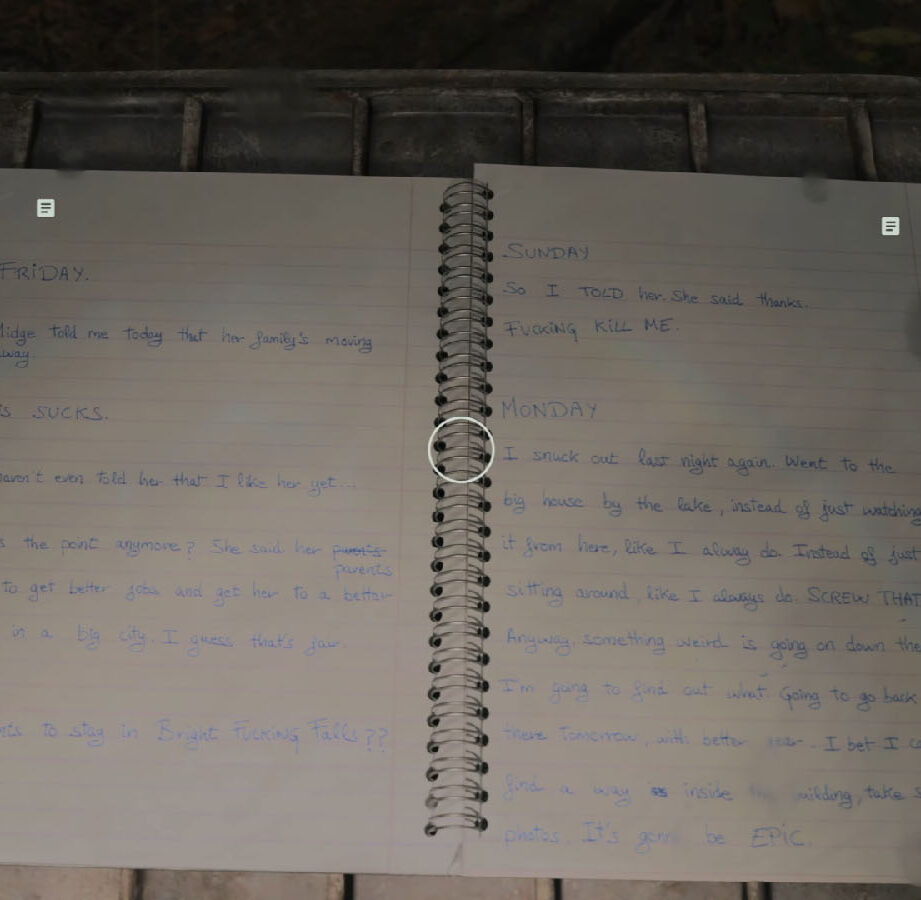 FRIDAY.
idge told me today that her family's moving
way.
s SUCKS.
aven't even told her that I like her yet...
s the point anymore? She said her parents
parents
to get better jobs and get her to a better
in a big city. I guess that's fair.
nts to stay in Bright FUCKING Falls??
SUNDAY
So I TOLD her. She said thanks.
FUCKING KILL ME.
MONDAY
I snuck out last night again. Went to the
big house by the lake, instead of just watching
it from here, like I always do. Instead of just
sitting around, like I always do. SCREW THAT
Anyway, something weird is going on down the
I'm going to find out what. Going to go back
there tomorrow, with better . I bet I c
find a way inside uilding, take s
photos. It's gonn be EPIC.